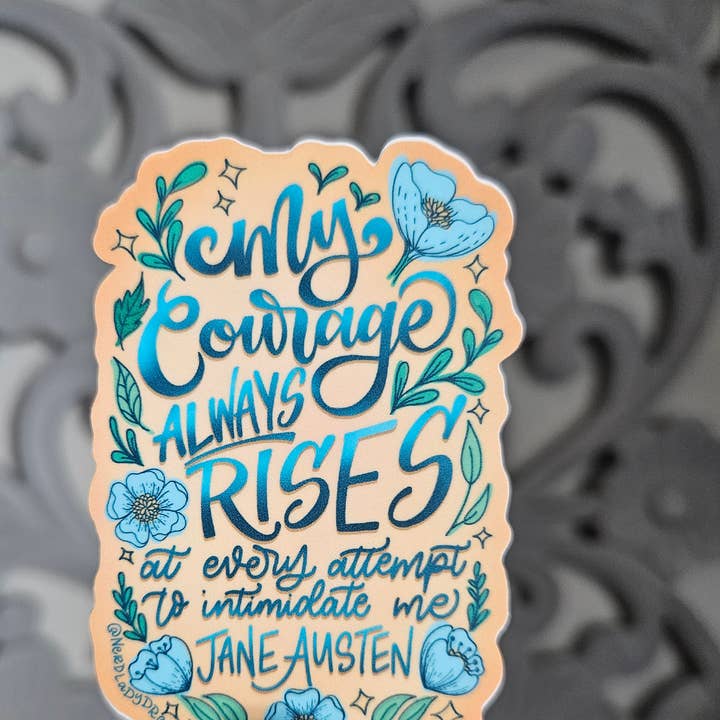 My
Courage
ALWAYS
RISES
at every attempt
to intimidate me
JANE AUSTEN